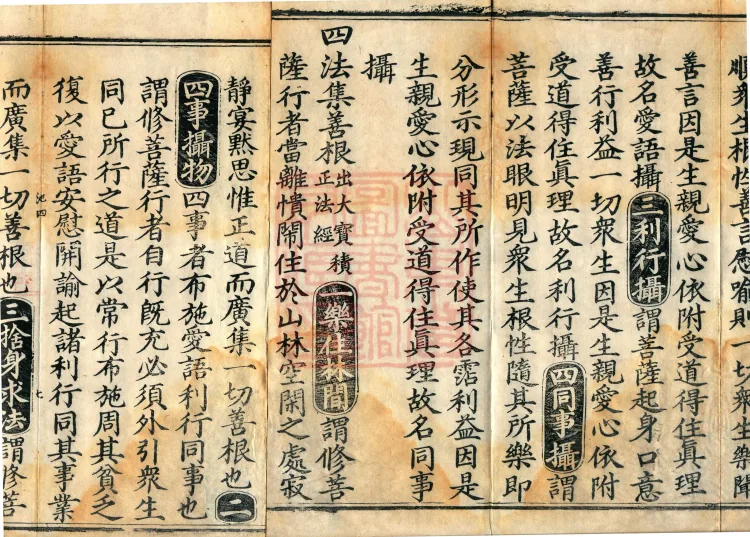 順衆生根性善言慰喻則一切衆生樂聞
善言因是生親愛心依附受道得住眞理
故名愛語攝三利行攝謂菩薩起身口意
善行利益一切衆生因是生親愛心依附
受道得住眞理故名利行攝四同事攝謂
菩薩以法眼明見衆生根性隨其所樂即
分形示現同其所作使其各霑利益因是
生親愛心依附受道得住眞理故名同事
攝
四法集善根出大寶積正法經一樂住林間謂修菩
薩行者當離憒鬧住於山林空閑之處寂
靜寞默思惟正道而廣集一切善根也二
四事攝物四事者布施愛語利行同事也
謂修菩薩行者自行旣充必須外引衆生
同己所行之道是以常行布施周其貧乏
復以愛語安慰開諭起諸利行同其事業
池四
七
而廣集一切善根也三捨身求法謂修菩